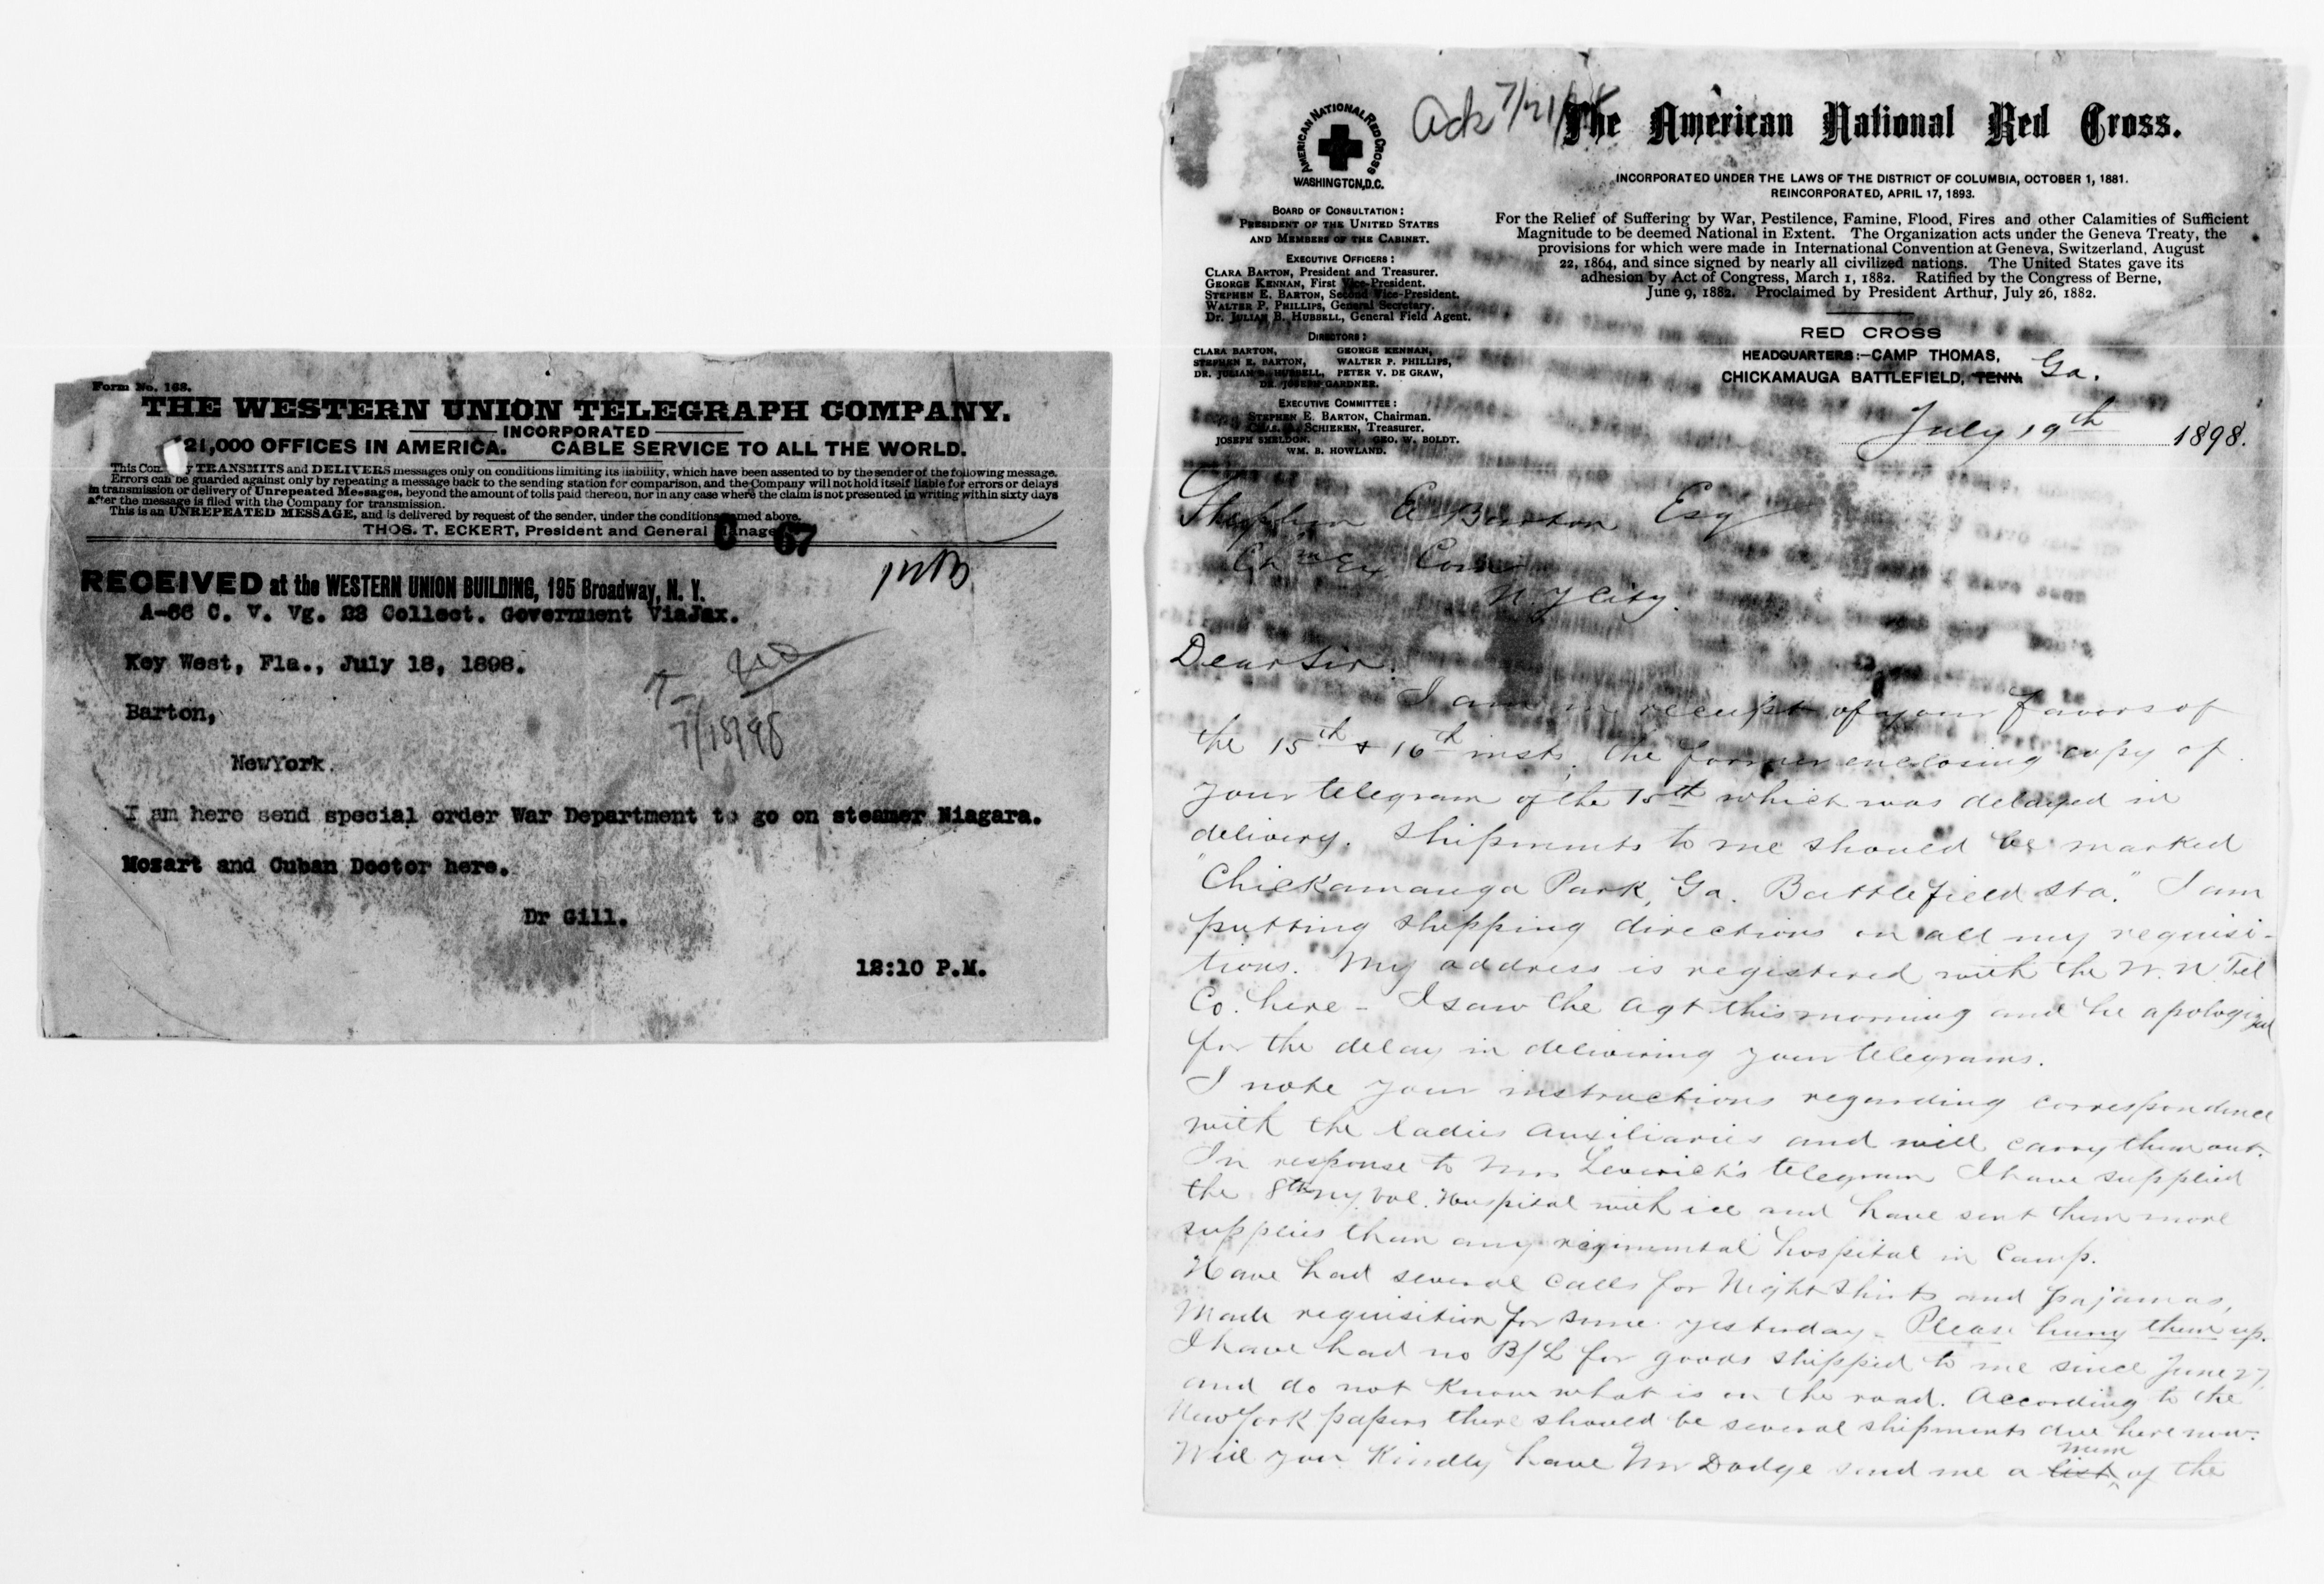 Form No. 168.
THE WESTERN UNION TELEGRAPH COMPANY.
INCORPORATED
21,000 OFFICES IN AMERICA. CABLE SERVICE TO ALL THE WORLD.
This Company TRANSMITS and DELIVERS messages only on conditions limiting its liability, which have been assented to by the sender of the following message.
Errors can be guarded against only by repeating a message back to the sending station for comparison, and the Company will not hold itself liable for errors or delays
in transmission or delivery of Unrepeated Messages, beyond the amount of tolls paid thereon, nor in any case where the claim is not presented in writing within sixty days
after the message is filed with the Company for transmission.
This is an UNREPEATED MESSAGE, and is delivered by request of the sender, under the conditions named above.
THOS. T. ECKERT, President and General Manager.
67
RECEIVED at the WESTERN UNION BUILDING, 195 Broadway, N. Y.
A-66 C. V. Vg. 23 Collect. Government ViaJax.
Key West, Fla., July 18, 1898.
7/18/98
Barton,
NewYork.
I am here send special order War Department to go on steamer Niagara.
Mozart and Cuban Doctor here.
Dr Gill.
12:10 P.M.
Ack 7/21/98
The American National Red Cross.
AMERICAN NATIONAL RED CROSS
WASHINGTON, D.C.
INCORPORATED UNDER THE LAWS OF THE DISTRICT OF COLUMBIA, OCTOBER 1, 1881.
REINCORPORATED, APRIL 17, 1893.
For the Relief of Suffering by War, Pestilence, Famine, Flood, Fires and other Calamities of Sufficient
Magnitude to be deemed National in Extent. The Organization acts under the Geneva Treaty, the
provisions for which were made in International Convention at Geneva, Switzerland, August
22, 1864, and since signed by nearly all civilized nations. The United States gave its
adhesion by Act of Congress, March 1, 1882. Ratified by the Congress of Berne,
June 9, 1882. Proclaimed by President Arthur, July 26, 1882.
BOARD OF CONSULTATION:
PRESIDENT OF THE UNITED STATES
AND MEMBERS OF THE CABINET.
EXECUTIVE OFFICERS:
CLARA BARTON, President and Treasurer.
GEORGE KENNAN, First Vice-President.
STEPHEN E. BARTON, Second Vice-President.
WALTER P. PHILLIPS, General Secretary.
Dr. JULIAN B. HUBBELL, General Field Agent.
DIRECTORS:
CLARA BARTON, GEORGE KENNAN,
STEPHEN E. BARTON, WALTER P. PHILLIPS,
DR. JULIAN B. HUBBELL, PETER V. DE GRAW,
DR. JOSEPH GARDNER.
EXECUTIVE COMMITTEE:
STEPHEN E. BARTON, Chairman.
CHAS. A. SCHIEREN, Treasurer.
JOSEPH SHELDON. GEO. W. BOLDT.
WM. B. HOWLAND.
RED CROSS
HEADQUARTERS:—CAMP THOMAS,
CHICKAMAUGA BATTLEFIELD, TENN. Ga.
July 19th 1898.
Stephen E Barton Esq
Chm Ex Com
N Y City.
Dear Sir.
I am in receipt of your favors of
the 15th & 16th inst, the former enclosing copy of
your telegram of the 15th which was delayed in
delivery. Shipments to me should be marked
"Chickamauga Park, Ga. Battlefield Sta." I am
putting shipping directions on all my requisi-
tions. My address is registered with the W. U Tel
Co. here - I saw the agt this morning and he apologized
for the delay in delivering your telegrams.
I note your instructions regarding correspondence
with the ladies auxiliaries and will carry them out.
In response to Mrs telegram I have supplied
the 8th NY Vol. Hospital with ice and have sent them more
supplies than any regimental hospital in Camp.
Have had several calls for Night Shirts and pajamas,
Made requisition for some yesterday - Please hurry them up.
I have had no B/L for goods shipped to me since June 27
and do not know what is on the road. According to the
New York papers there should be several shipments due here now.
Will you kindly have Mr Dodge send me a list mem of the